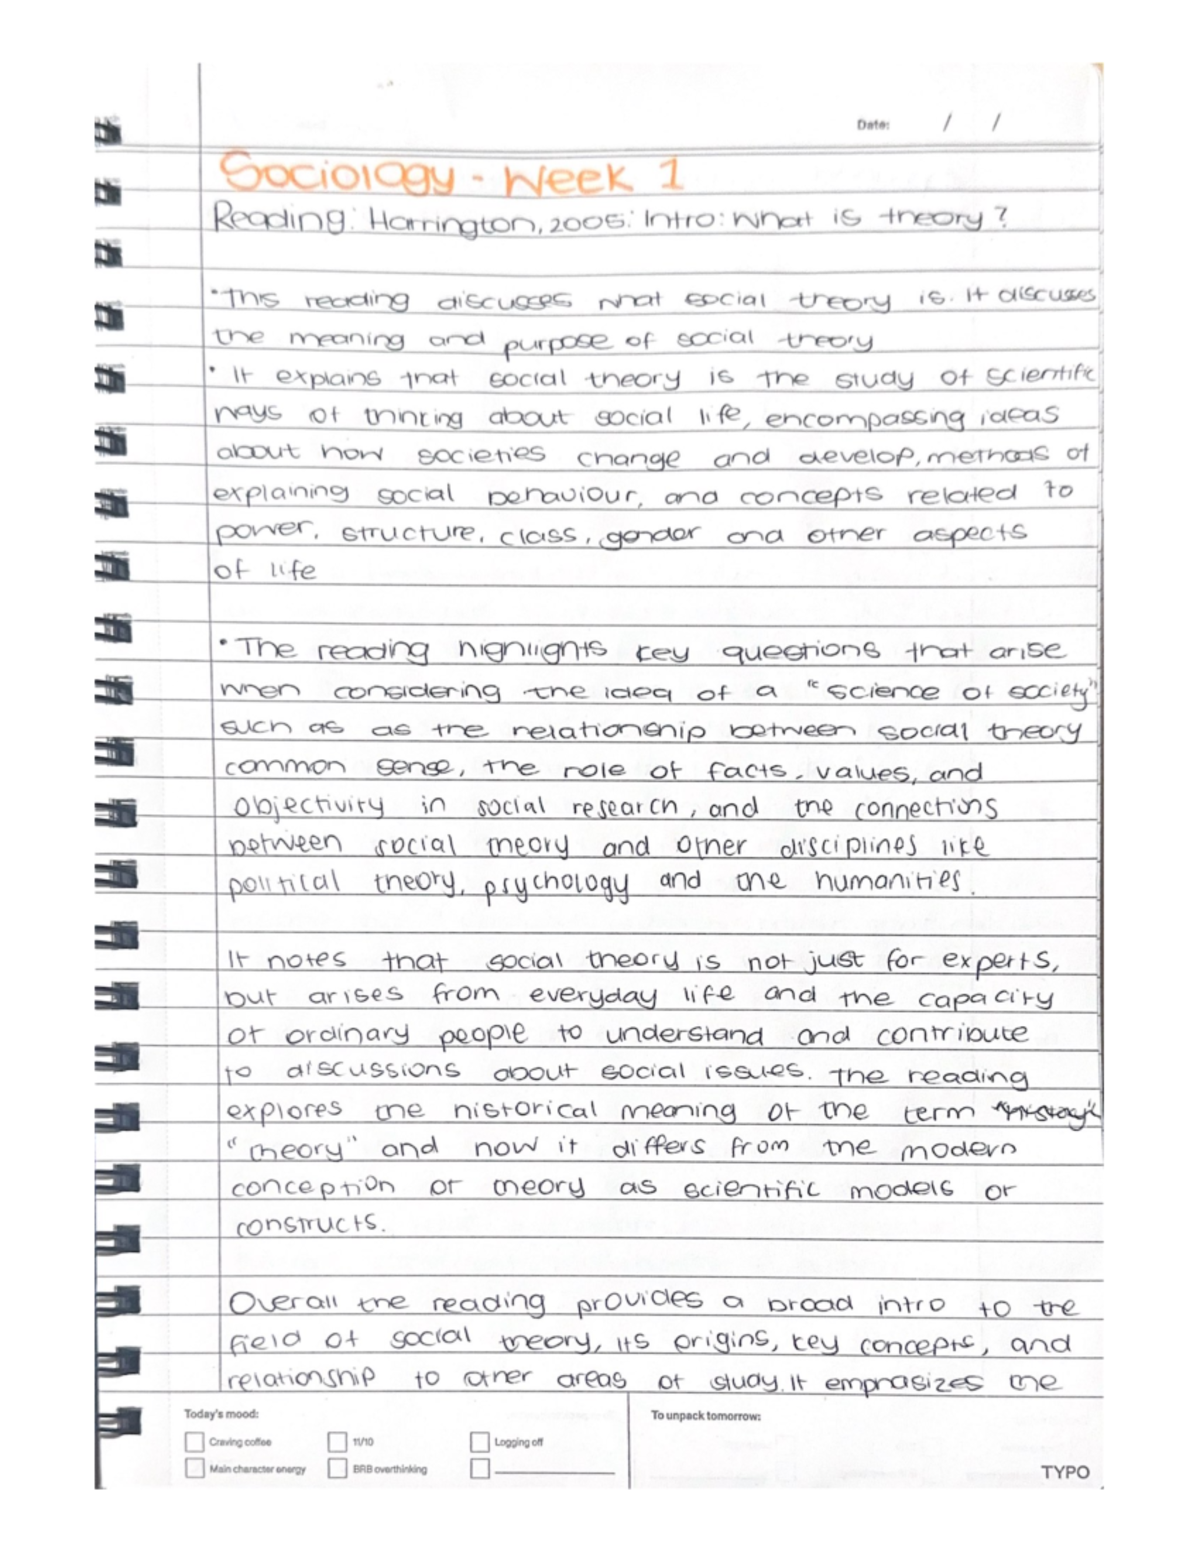 Date: / /
Sociology - Week 1
Reading: Harrington, 2005: Intro: What is theory?
• This reading discusses what social theory is. It discusses
the meaning and purpose of social theory
• It explains that social theory is the study of scientific
ways of thinking about social life, encompassing ideas
about how societies change and develop, methods of
explaining social behaviour, and concepts related to
power, structure, class, gender and other aspects
of life
• The reading highlights key questions that arise
when considering the idea of a "science of society"
such as as the relationship between social theory
common sense, the role of facts, values, and
objectivity in social research, and the connections
between social theory and other disciplines like
political theory, psychology and the humanities.
It notes that social theory is not just for experts,
but arises from everyday life and the capacity
of ordinary people to understand and contribute
to discussions about social issues. The reading
explores the historical meaning of the term
"theory" and how it differs from the modern
conception of theory as scientific models or
constructs.
Overall the reading provides a broad intro to the
field of social theory, its origins, key concepts, and
relationship to other areas of study. It emphasizes the
Today's mood:
Craving coffee
11/10
Logging off
Main character energy
BRB overthinking
To unpack tomorrow:
TYPO